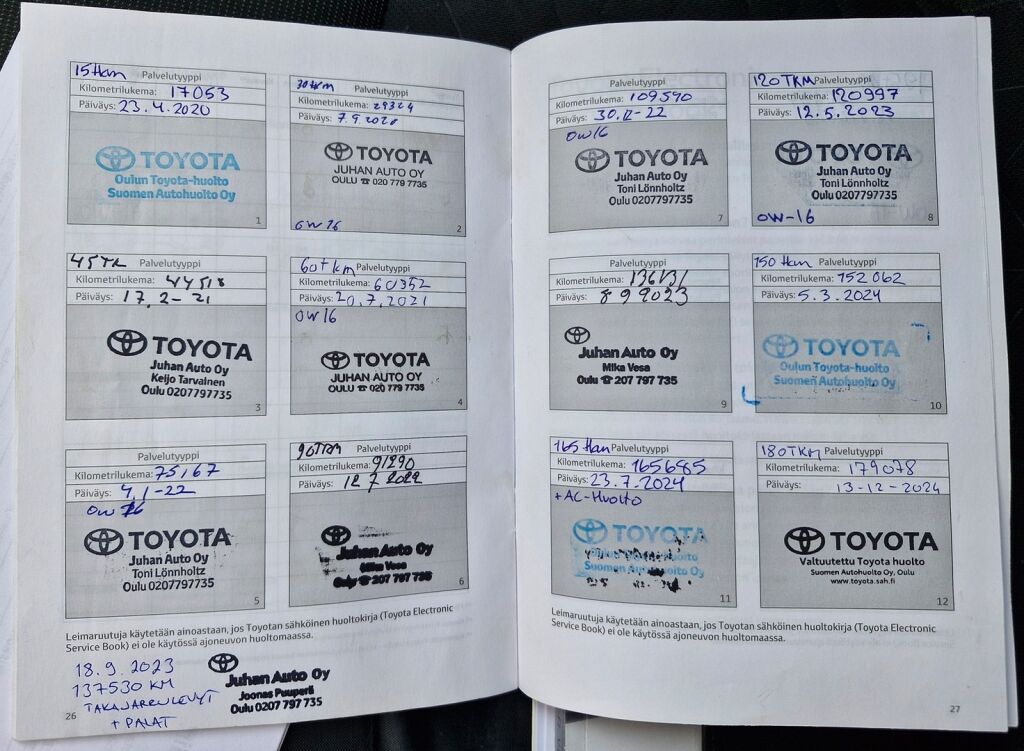 15tkm Palvelutyyppi
Kilometrilukema: 17053
Päiväys: 23.4.2020
TOYOTA
Oulun Toyota-huolto
Suomen Autohuolto Oy
1
30tkm Palvelutyyppi
Kilometrilukema: 29324
Päiväys: 7.9.2020
TOYOTA
JUHAN AUTO OY
OULU ☎ 020 779 7735
0W16
2
45TK Palvelutyyppi
Kilometrilukema: 44518
Päiväys: 17.2-21
TOYOTA
Juhan Auto Oy
Keijo Tarvainen
Oulu 0207797735
3
60tkm Palvelutyyppi
Kilometrilukema: 60352
Päiväys: 20.7.2021
0W16
TOYOTA
JUHAN AUTO OY
OULU ☎ 020 779 7735
4
Palvelutyyppi
Kilometrilukema: 75167
Päiväys: 4.1-22
0W16
TOYOTA
Juhan Auto Oy
Toni Lönnholtz
Oulu 0207797735
5
90TKM Palvelutyyppi
Kilometrilukema: 91290
Päiväys: 12 7 2022
Juhan Auto Oy
Mika Vesa
Oulu ☎ 207 797 735
6
Leimaruutuja käytetään ainoastaan, jos Toyotan sähköinen huoltokirja (Toyota Electronic
Service Book) ei ole käytössä ajoneuvon huoltomaassa.
18.9.2023
137530 KM
TAKAJARRULEVYT
+ PALAT
Juhan Auto Oy
Joonas Puuperä
Oulu 0207 797 735
26
Palvelutyyppi
Kilometrilukema: 109590
Päiväys: 30.12-22
0W16
TOYOTA
Juhan Auto Oy
Toni Lönnholtz
Oulu 0207797735
7
120TKM Palvelutyyppi
Kilometrilukema: 120997
Päiväys: 12.5.2023
TOYOTA
Juhan Auto Oy
Toni Lönnholtz
Oulu 0207797735
0W-16
8
Palvelutyyppi
Kilometrilukema: 136131
Päiväys: 8 9 2023
Juhan Auto Oy
Mika Vesa
Oulu ☎ 207 797 735
9
150tkm Palvelutyyppi
Kilometrilukema: 152062
Päiväys: 5.3.2024
TOYOTA
Oulun Toyota-huolto
Suomen Autohuolto Oy
10
165tkm Palvelutyyppi
Kilometrilukema: 165685
Päiväys: 23.7.2024
+AC-Huolto
TOYOTA
Oulun Toyota-huolto
Suomen Autohuolto Oy
11
180TKM Palvelutyyppi
Kilometrilukema: 179078
Päiväys: 13-12-2024
TOYOTA
Valtuutettu Toyota huolto
Suomen Autohuolto Oy, Oulu
www.toyota.sah.fi
12
Leimaruutuja käytetään ainoastaan, jos Toyotan sähköinen huoltokirja (Toyota Electronic
Service Book) ei ole käytössä ajoneuvon huoltomaassa.
27